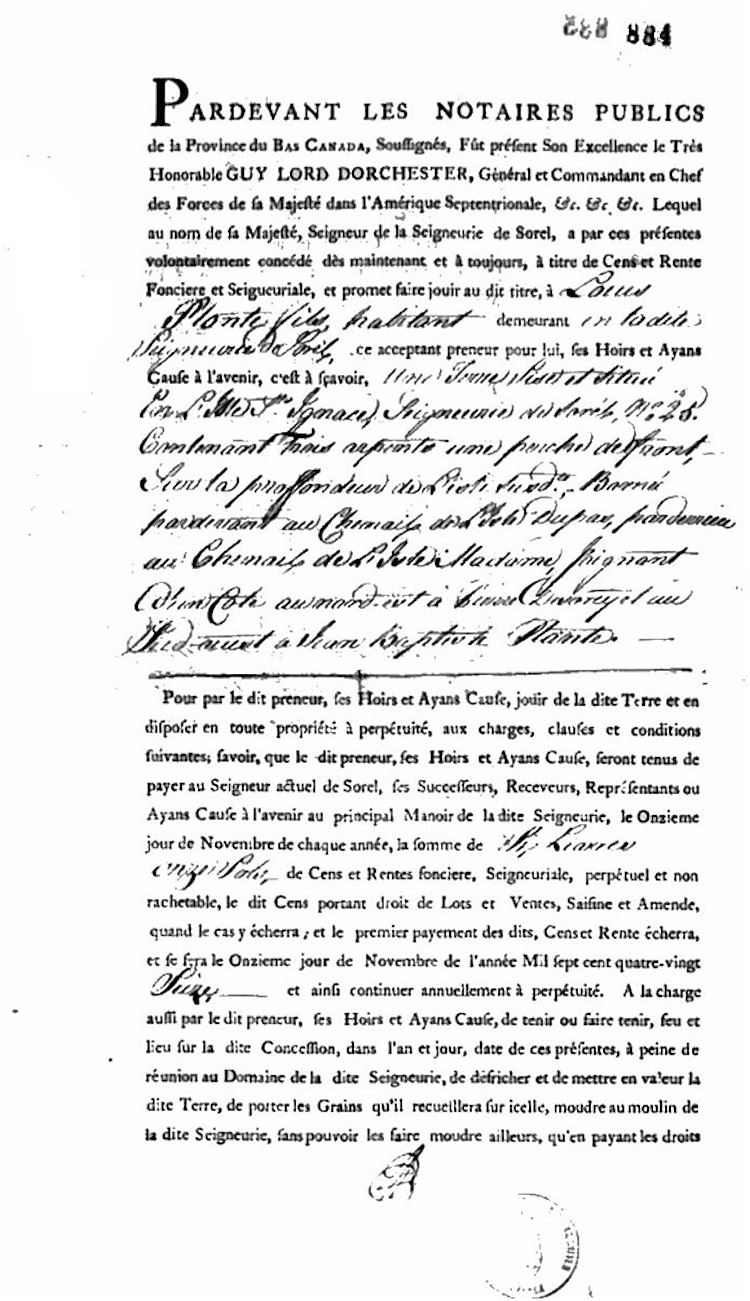 884
PARDEVANT LES NOTAIRES PUBLICS
de la Province du BAS CANADA, Souſſignés, Fût préſent Son Excellence le Très
Honorable GUY LORD DORCHESTER, Général et Commandant en Chef
des Forces de ſa Majeſté dans l'Amérique Septentrionale, &c. &c. &c. Lequel
au nom de ſa Majeſté, Seigneur de la Seigneurie de Sorel, a par ces préſentes
volontairement concédé dès maintenant et à toujours, à titre de Cens et Rente
Fonciere et Seigueuriale, et promet faire jouir au dit titre, à Louis
Plante fils, habitant demeurant en ladite
Seigneurie de Sorel, ce acceptant preneur pour lui, ſes Hoirs et Ayans
Cauſe à l'avenir, c'eſt à ſçavoir, Une Terre Sise et Située
En L'Isle St. Ignace, Seigneurie de Sorel, No. 25.
Contenant trois arpents une perche de front,
Sur la proffondeur de L'isle susde. Borné
pardevant au Chenail de L'Isle Dupas, parderriere
au Chenail de L'Isle Madame, joignant
D'un Coté au nord-est à et au
Sud-ouest à Jean Baptiste Plante.
Pour par le dit preneur, ſes Hoirs et Ayans Cauſe, jouir de la dite Terre et en
diſpoſer en toute propriété à perpétuité, aux charges, clauſes et conditions
ſuivantes; ſavoir, que le dit preneur, ſes Hoirs et Ayans Cauſe, ſeront tenus de
payer au Seigneur actuel de Sorel, ſes Succeſſeurs, Receveurs, Repréſentants ou
Ayans Cauſe à l'avenir au principal Manoir de la dite Seigneurie, le Onzieme
jour de Novembre de chaque année, la ſomme de Livres
onze Sols, de Cens et Rentes fonciere, Seigneuriale, perpétuel et non
rachetable, le dit Cens portant droit de Lots et Ventes, Saiſine et Amende,
quand le cas y écherra; et le premier payement des dits, Cens et Rente écherra,
et ſe fera le Onzieme jour de Novembre de l'année Mil ſept cent quatre-vingt
Seize et ainſi continuer annuellement à perpétuité. A la charge
auſſi par le dit preneur, ſes Hoirs et Ayans Cauſe, de tenir ou faire tenir, feu et
lieu ſur la dite Conceſſion, dans l'an et jour, date de ces préſentes, à peine de
réunion au Domaine de la dite Seigneurie, de défricher et de mettre en valeur la
dite Terre, de porter les Grains qu'il recueillera ſur icelle, moudre au moulin de
la dite Seigneurie, ſans pouvoir les faire moudre ailleurs, qu'en payant les droits